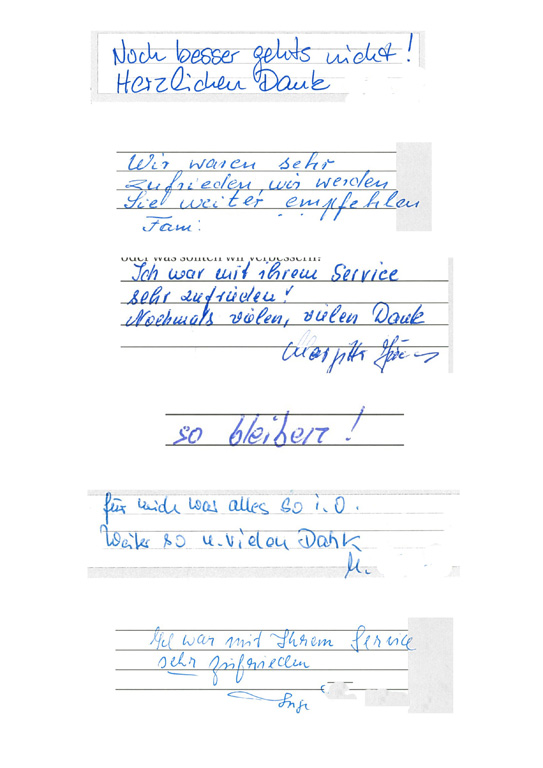 Noch besser gehts nicht!
Herzlichen Dank
Wir waren sehr
zufrieden, wir werden
Sie weiter empfehlen
Fam:
oder was sollten wir verbessern?
Ich war mit ihrem Service
sehr zufrieden!
Nochmals vielen, vielen Dank
so bleiben!
für mich war alles so i.O.
Weiter so u. vielen Dank
M.
war mit Ihrem Service
sehr zufrieden
Inge